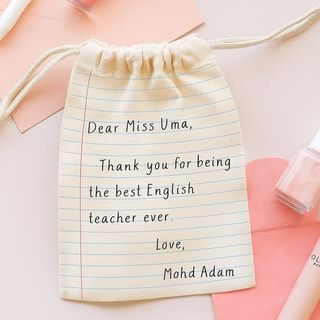 Dear Miss Uma,
Thank you for being
the best English
teacher ever.
Love,
Mohd Adam